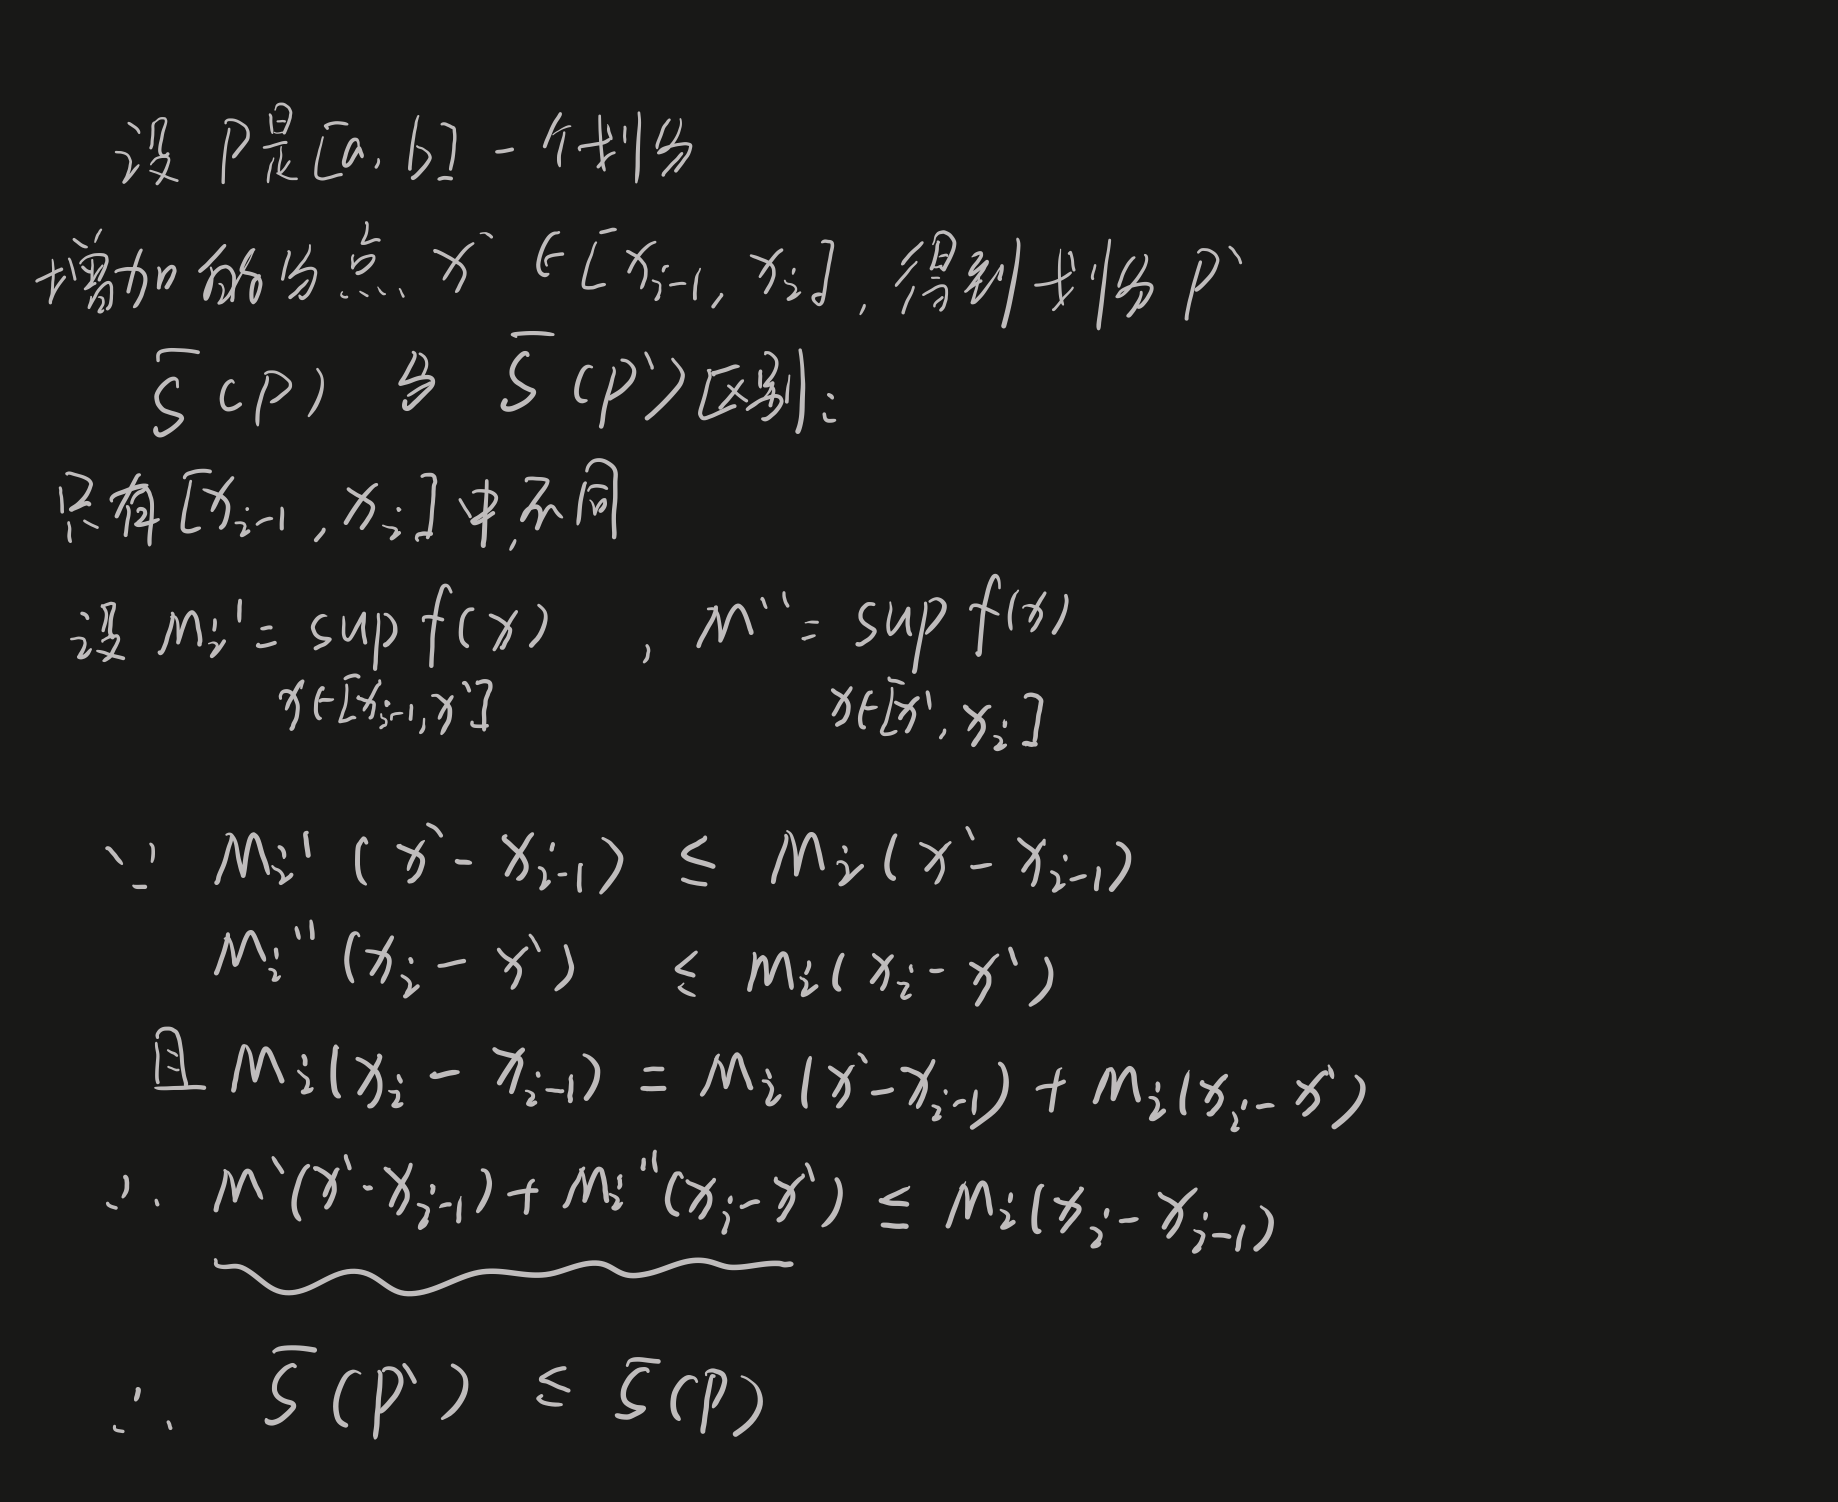 设 P是[a, b] 一个划分
增加的分点 x' ∈ [x_{i-1}, x_i], 得到划分 P'
S̅(P) 与 S̅(P')区别:
只有[x_{i-1}, x_i]中不同
设 M_i' = sup f(x) , M'' = sup f(x)
x∈[x_{i-1}, x'] x∈[x', x_i]
∵ M_i' (x' - x_{i-1}) ≤ M_i (x' - x_{i-1})
M_i'' (x_i - x') ≤ M_i (x_i - x')
且 M_i (x_i - x_{i-1}) = M_i (x' - x_{i-1}) + M_i (x_i - x')
∴ M' (x' - x_{i-1}) + M_i'' (x_i - x') ≤ M_i (x_i - x_{i-1})
∴ S̅(P') ≤ S̅(P)